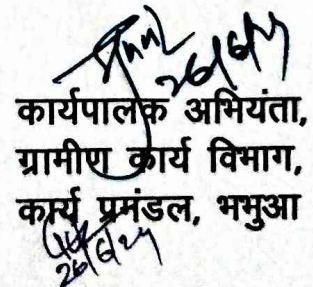 26/6/24
कार्यपालक अभियंता,
ग्रामीण कार्य विभाग,
कार्य प्रमंडल, भभुआ
26/6/24